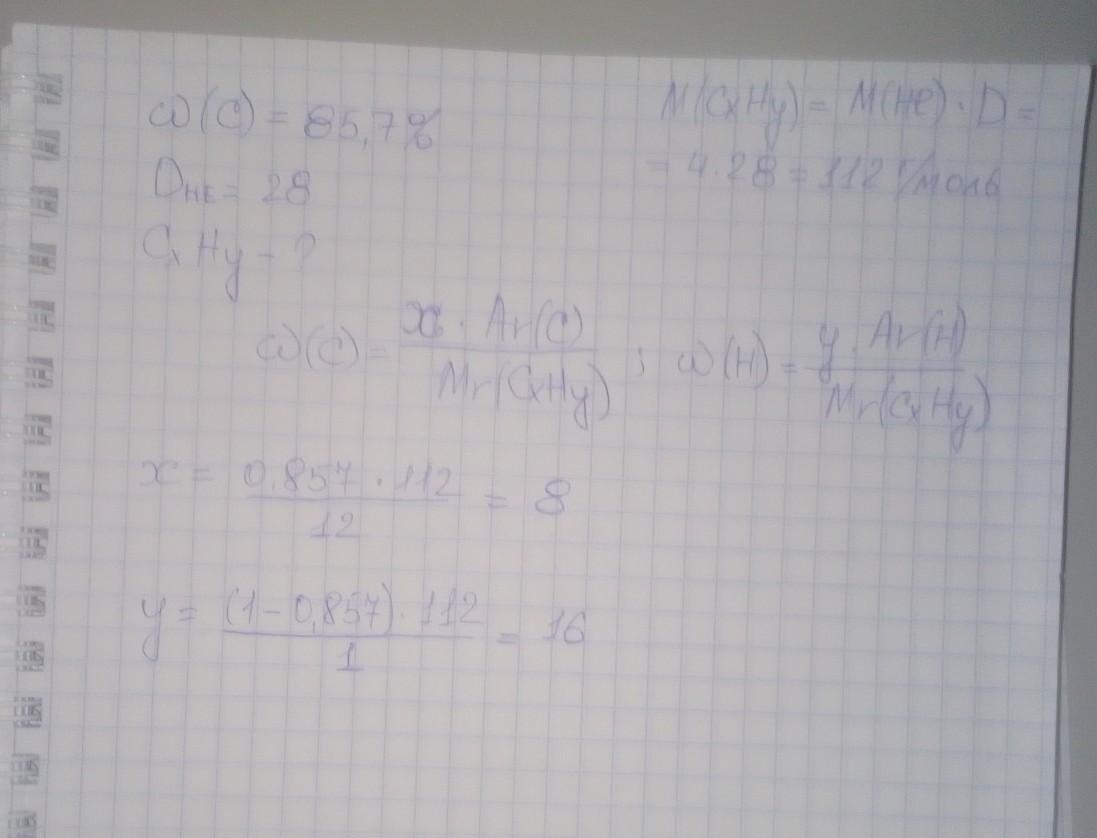 ω(C) = 85,7%
D_HE = 28
CxHy - ?
M(CxHy) = M(HE) · D =
= 4·28 = 112 г/моль
ω(C) = x · Ar(C) / Mr(CxHy) ; ω(H) = y · Ar(H) / Mr(CxHy)
x = 0,857 · 112 / 12 = 8
y = (1 - 0,857) · 112 / 1 = 16